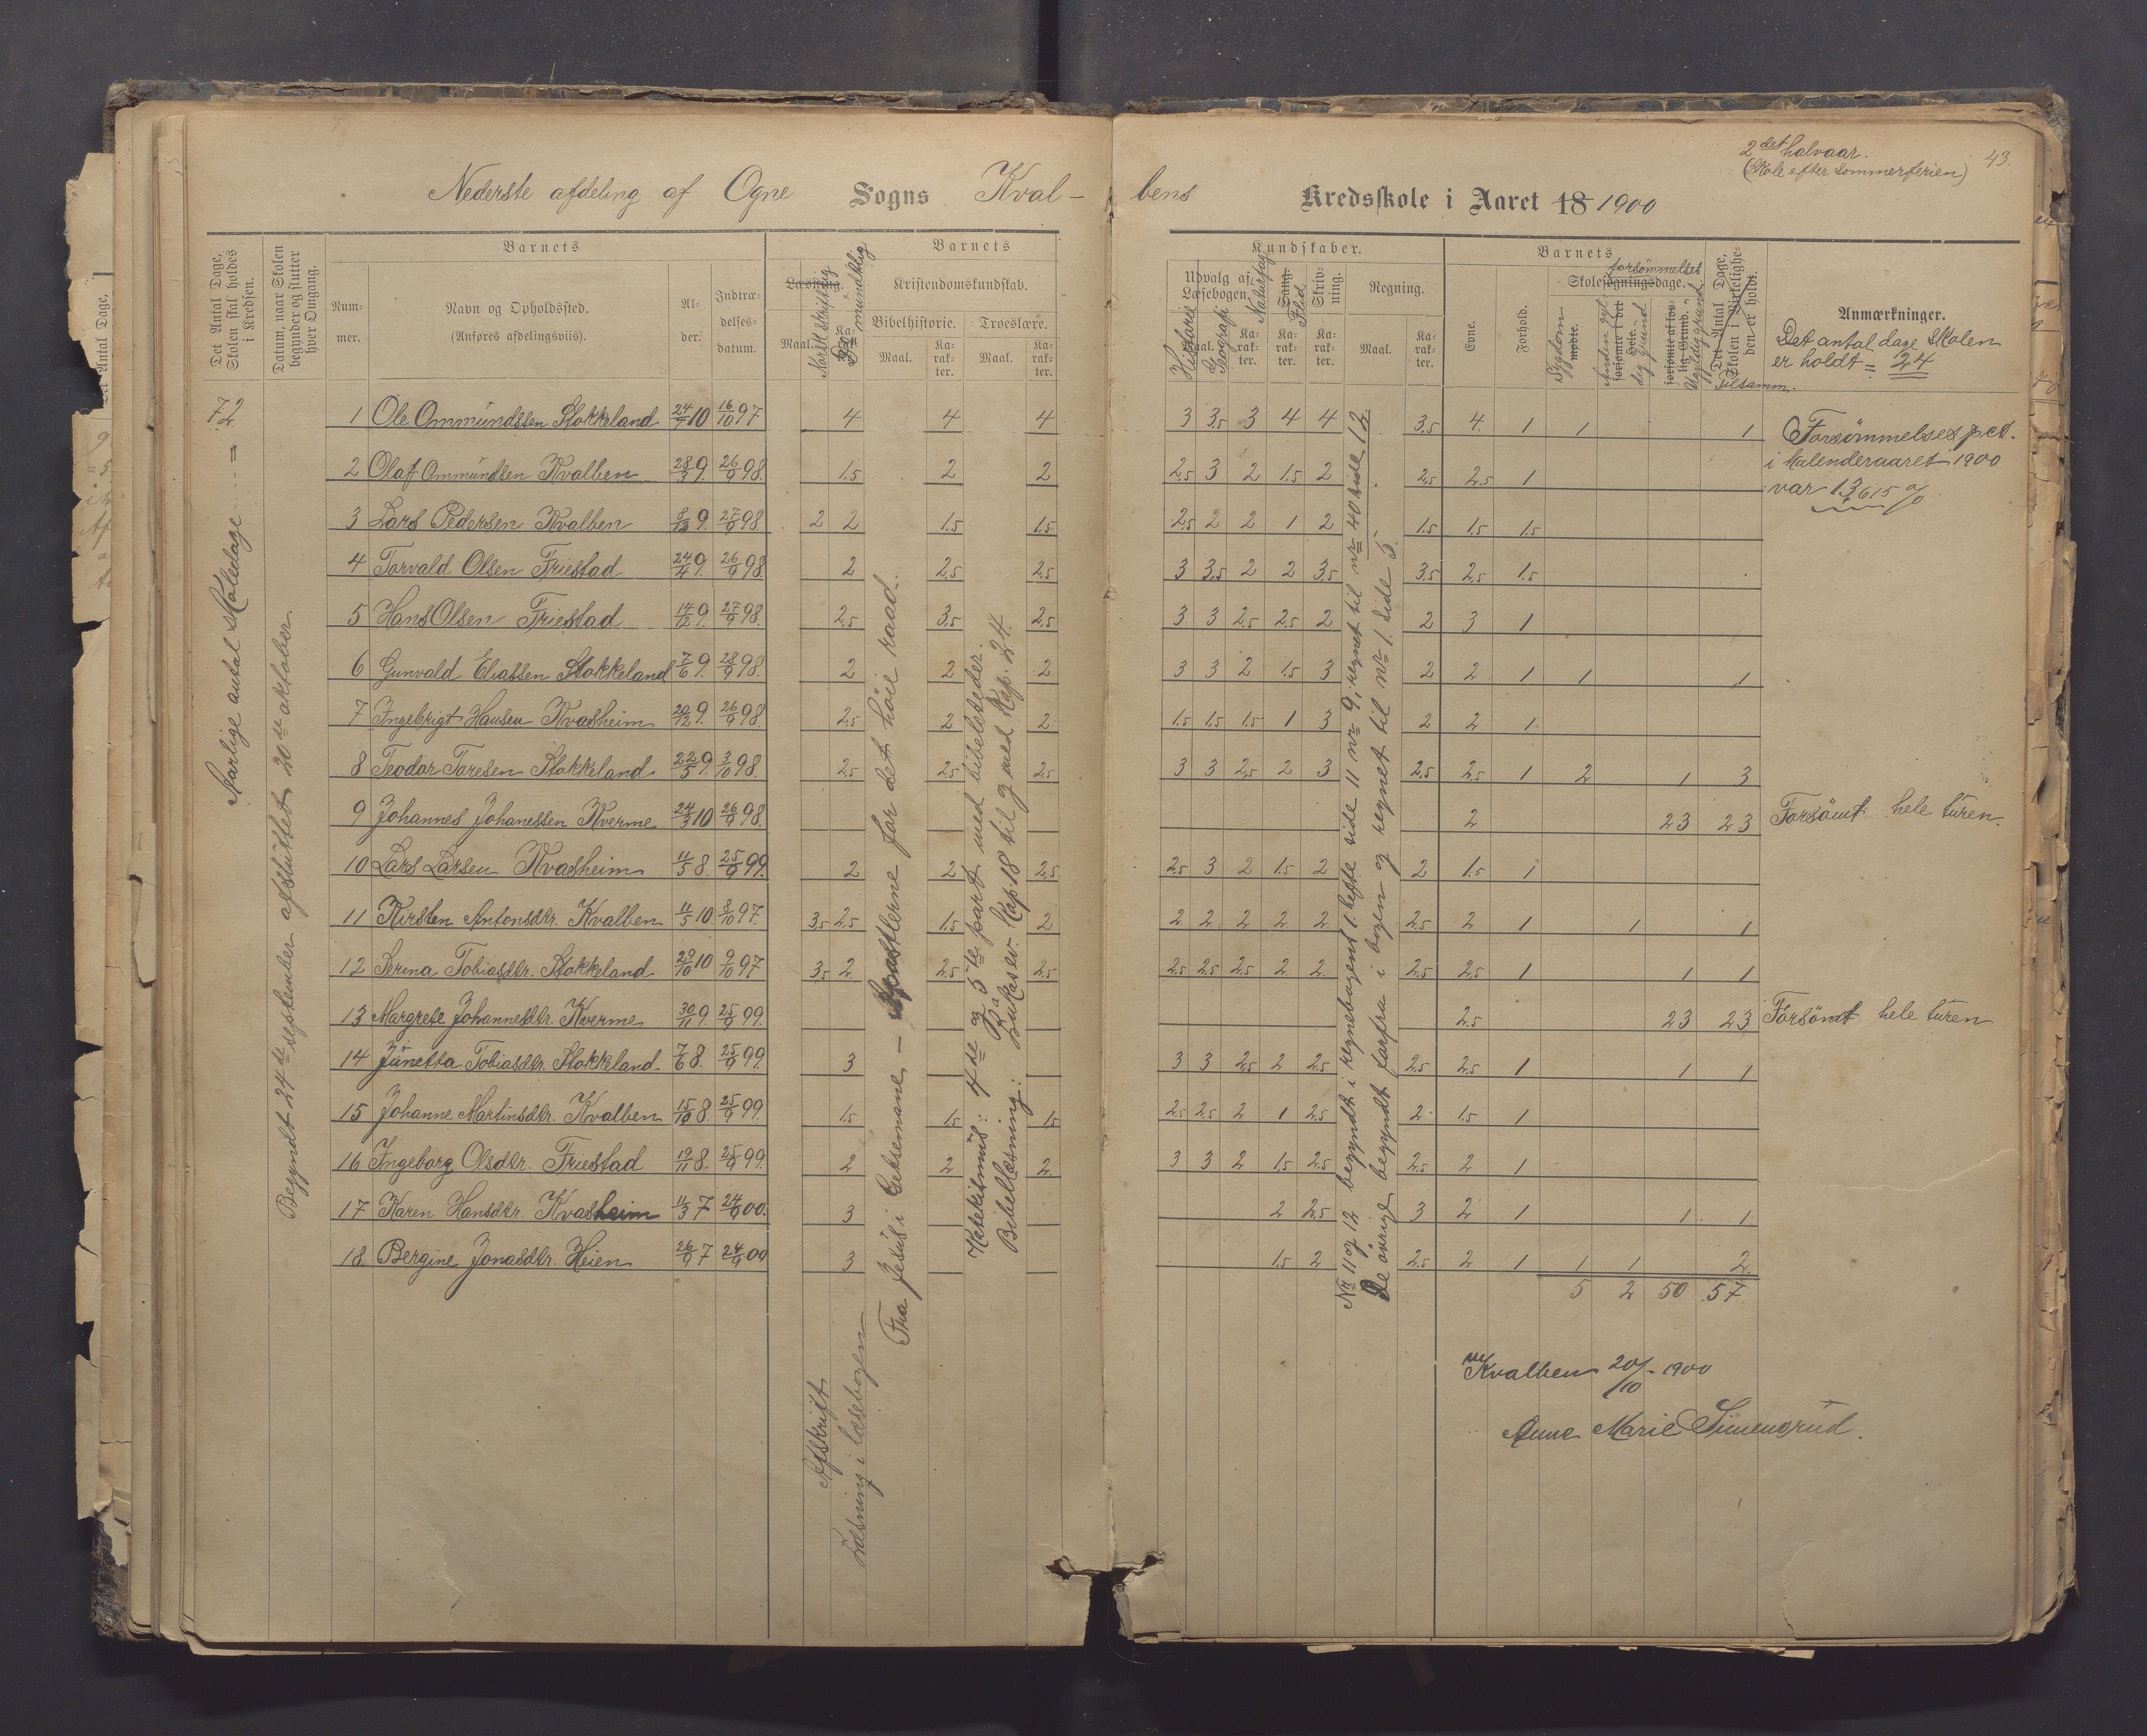 2det halvaar.
(Skole efter sommerferien)
43.
Nederste afdeling af Ogne Sogns Kvalbens Kredsskole i Aaret 18 1900
Det Antal Dage, Skolen skal holdes i Kredsen.
Datum, naar Skolen begynder og slutter hver Omgang.
Barnets
Nummer.
Navn og Opholdssted.
(Anføres afdelingsviis).
Alder.
Indtrædelsesdatum.
Barnets
Læsning.
Maal.
Norsk skriftlig
mundtlig
Kristendomskundskab.
Bibelhistorie.
Maal.
Karakter.
Troeslære.
Maal.
Karakter.
Kundskaber.
Udvalg af Læsebogen.
Maal.
Historie
Geografi
Karakter.
Naturfag
Sang.
Flid
Karakter.
Skrivning.
Karakter.
Regning.
Maal.
Karakter.
Barnets
Evne.
Forhold.
Skolesøgningsdage.
forsømmelses
Sygdom
mødte.
Anden gyldig grund
forsømte i det Hele.
forsømte af lovlig Grund.
Ugyldig grund
Det Antal Dage, Skolen i Virkeligheden er holdt.
Tilsamm.
Anmærkninger.
Det antal dage skolen
er holdt = 24
72
Aarlige antal skoledage = 72
Begyndt 24de september afsluttet 20de oktober
1 Ole Ommundssen Stokkeland 24/7 10 16/10 97 4 4 4 3 3,5 3 4 4 3,5 4. 1 1 1
Forsømmelses pct.
2 Olaf Ommundsen Kvalben 28/3 9. 26/9 98. 1.5 2 2 2,5 3 2 1.5 2 2,5 2,5 1
i kalenderaaret 1900
var 13,615 %
3 Lars Pedersen Kvalben 8/13 9. 27/9 98 2 2 1.5 1.5 2,5 2 2 1 2 1.5 1.5 1.5
4 Torvald Olsen Friestad 24/4 9. 26/9 98 2 2,5 2,5 3 3,5 2 2 3,5 3,5 2,5 1.5
5 Hans Olsen Friestad 14/12 9. 27/9 98. 2,5 3,5 2,5 3 3 2,5 2,5 2 2 3 1
6 Gunvald Eliassen Stokkeland 7/6 9. 28/9 98. 2 2 2 3 3 2 1.5 3 2 2 1 1 1
7 Ingebrigt Hansen Kvasheim 20/12 9. 26/9 98. 2,5 2 2 1.5 1.5 1.5 1 3 2 2 1
8 Teodor Toresen Stokkeland 22/5 9. 3/10 98. 2,5 2,5 2,5 3 3 2,5 2 3 2,5 2,5 1 2 1 3
9 Johannes Johanessen Kverme 24/3 10 26/9 98 2 23 23 Forsömt hele turen.
10 Lars Larsen Kvasheim 11/5 8. 25/9 99. 2 2 2,5 2,5 3 2 1.5 2 2 1.5 1
11 Kirsten Antonsdtr. Kvalben 11/5 10 8/10 97. 3,5 2,5 1.5 2 2 2 2 2 2 2,5 2 1 1 1
12 Serina Tobiasdtr. Stokkeland 29/10 10 9/10 97 3,5 2 2,5 2,5 2,5 2,5 2,5 2 2 2,5 2,5 1 1 1
13 Margrete Johannesdtr. Kverme 30/11 9. 25/9 99. 2,5 23 23 Forsömt hele turen
14 Junetta Tobiasdtr. Stokkeland. 7/6 8. 25/9 99. 3 3 3 2,5 2 2,5 2,5 2,5 1 1 1
15 Johanne Martinsdtr. Kvalben 15/10 8. 25/9 99. 1.5 1.5 1.5 2,5 2,5 2 1 2,5 2 1.5 1
16 Ingeborg Olsdtr. Friestad 19/11 8. 25/9 99. 2 2 2. 3 3 2 1.5 2,5 2,5 2 1
17 Karen Hansdtr. Kvasheim 11/3 7 24/9 00. 3 2 2,5 3 2 1 1 1
18 Bergine Jonasdtr. Heien 26/9 7 24/9 00 3 1.5 2 2,5 2 1 1 1 2.
5 2 50 57
Afskrift
Læsning i læsebogen
Fra Jesus i Getsemane – Apostlerne for det höie raad.
Katekismus: 4de og 5te part med bibelsteder.
Bibellæsning: Lukas ev. Kap. 18 til og med Kap. 24.
No 11 og 12 begyndt i regnebogens 1. hefte side 11 nr 9, regnet til nr 40 side 12.
De øvrige begyndt forfra i bogen og regnet til nr 1. side 5.
Kvalben 20/10 - 1900
Anne Marie Simensrud.